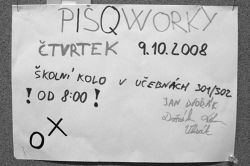 PIŠQWORKY
ČTVRTEK 9.10.2008
ŠKOLNÍ KOLO V UČEBNÁCH 301/302
! OD 8:00 !
JAN DVOŘÁK
Dvořák
OX